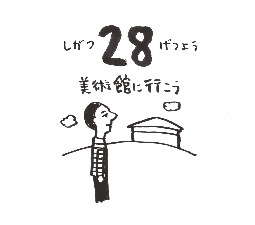 しがつ 28 げつよう
美術館に行こう